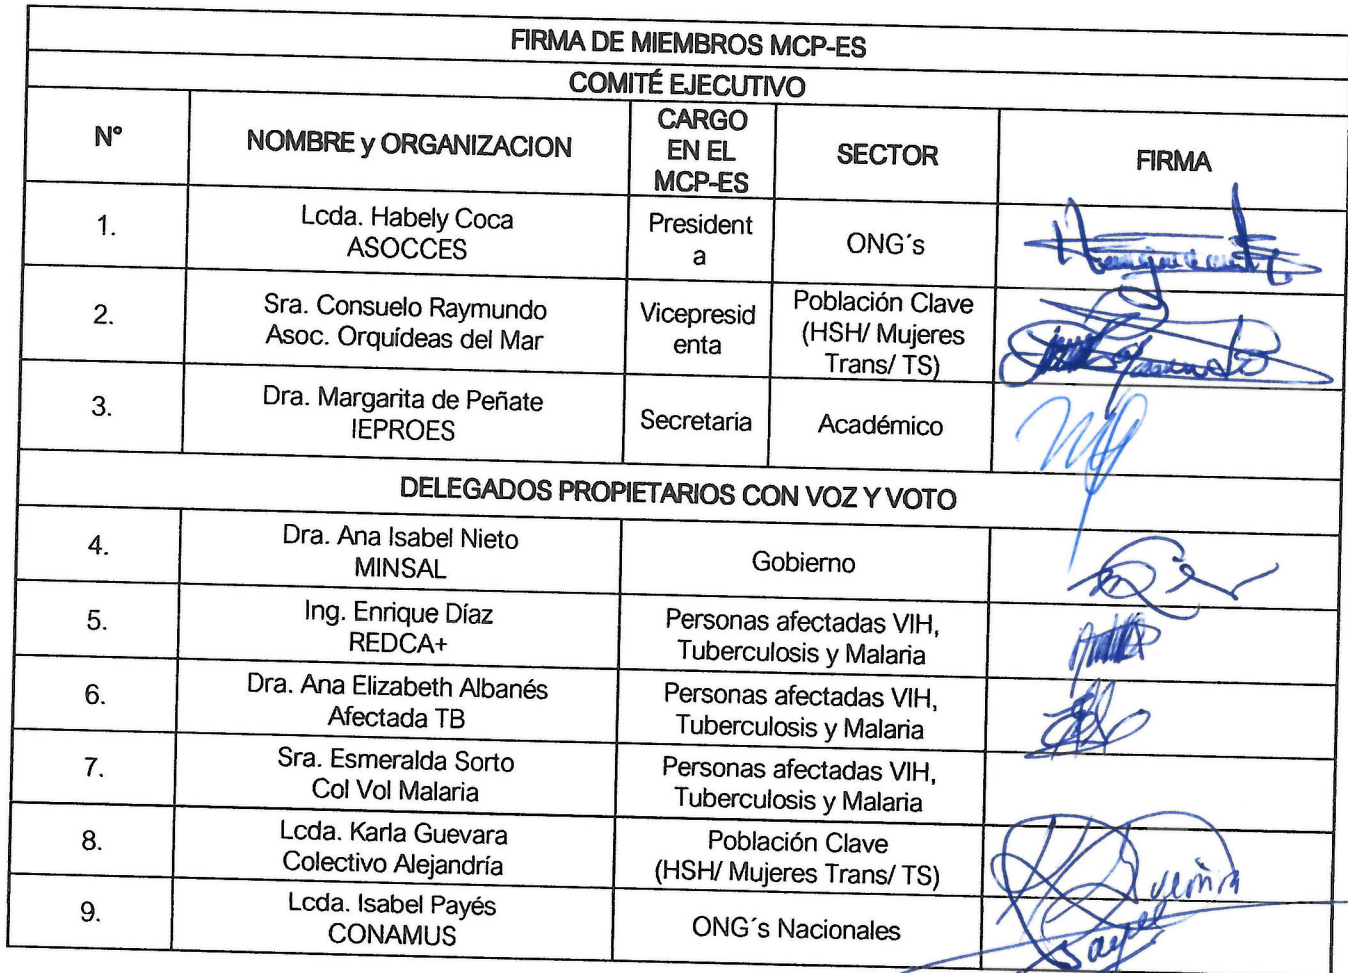 FIRMA DE MIEMBROS MCP-ES
COMITÉ EJECUTIVO
N°
NOMBRE y ORGANIZACION
CARGO
EN EL
MCP-ES
SECTOR
FIRMA
1.
Lcda. Habely Coca
ASOCCES
President
a
ONG´s
2.
Sra. Consuelo Raymundo
Asoc. Orquídeas del Mar
Vicepresid
enta
Población Clave
(HSH/ Mujeres
Trans/ TS)
3.
Dra. Margarita de Peñate
IEPROES
Secretaria
Académico
DELEGADOS PROPIETARIOS CON VOZ Y VOTO
4.
Dra. Ana Isabel Nieto
MINSAL
Gobierno
5.
Ing. Enrique Díaz
REDCA+
Personas afectadas VIH,
Tuberculosis y Malaria
6.
Dra. Ana Elizabeth Albanés
Afectada TB
Personas afectadas VIH,
Tuberculosis y Malaria
7.
Sra. Esmeralda Sorto
Col Vol Malaria
Personas afectadas VIH,
Tuberculosis y Malaria
8.
Lcda. Karla Guevara
Colectivo Alejandría
Población Clave
(HSH/ Mujeres Trans/ TS)
9.
Lcda. Isabel Payés
CONAMUS
ONG´s Nacionales